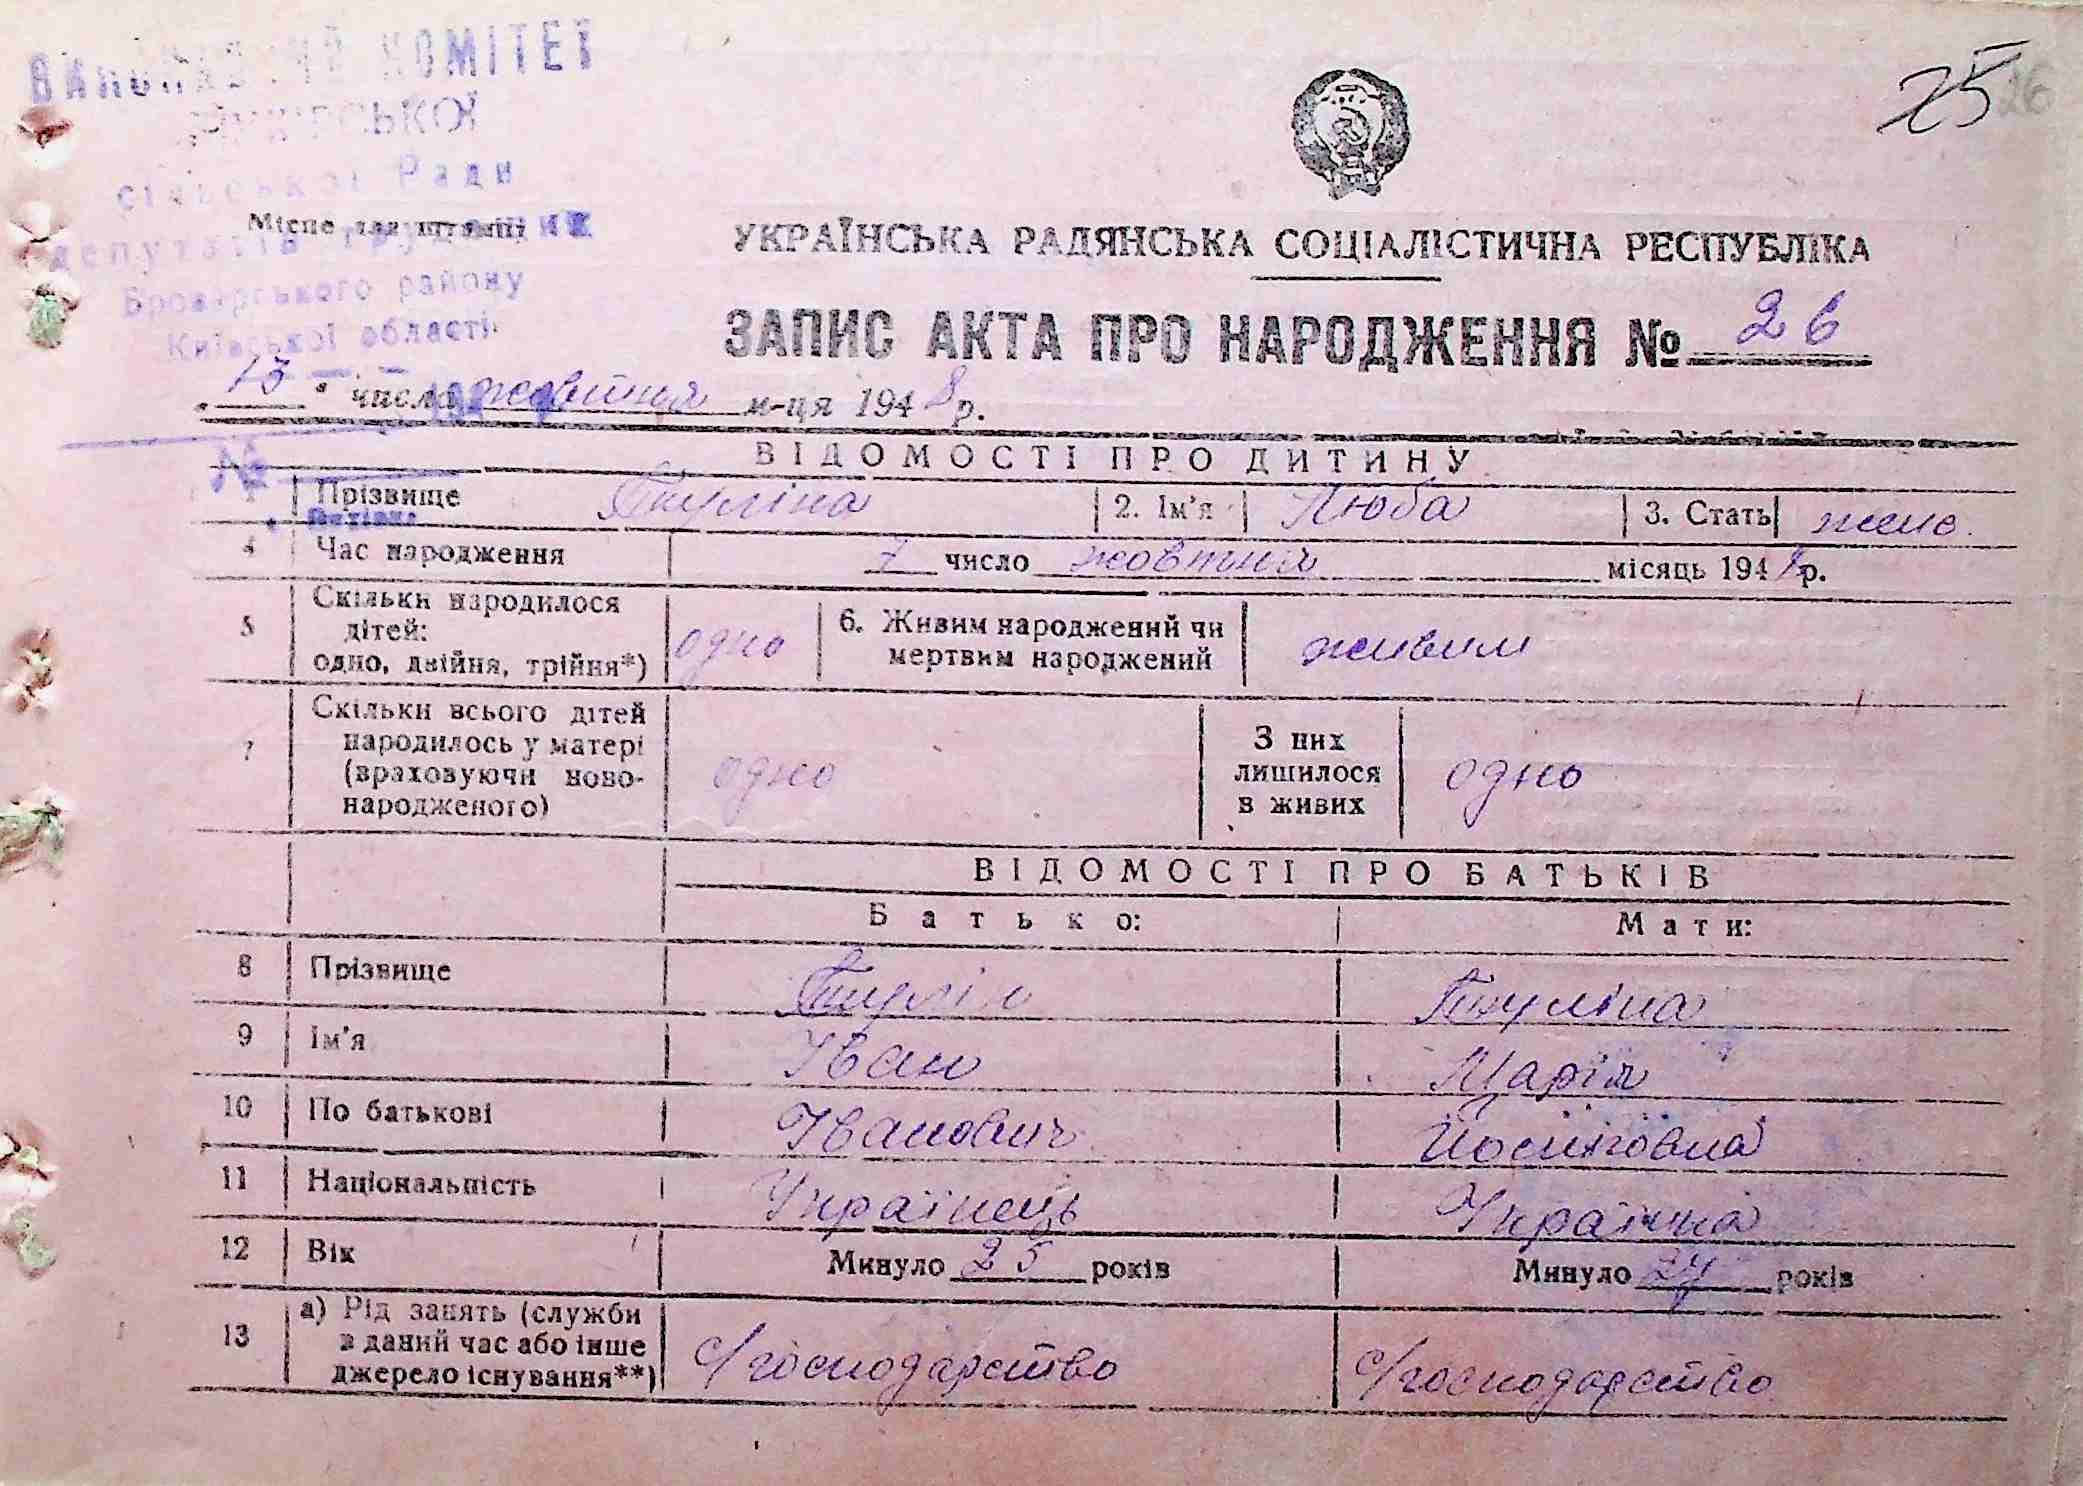 ВИКОНАВЧИЙ КОМІТЕТ
сільської Ради
депутатів трудящих
Броварського району
Київської області
25
26
Місце для штампу
УКРАЇНСЬКА РАДЯНСЬКА СОЦІАЛІСТИЧНА РЕСПУБЛІКА
ЗАПИС АКТА ПРО НАРОДЖЕННЯ № 26
13 числа жовтня м-ця 1948 р.
№
ВІДОМОСТІ ПРО ДИТИНУ
1 Прізвище Туліна 2. Ім'я Люба 3. Стать жіно.
4 Час народження 7 число жовтня місяць 1948 р.
5 Скільки народилося дітей: одно, двійня, трійня*) одно 6. Живим народжений чи мертвим народжений живим
7 Скільки всього дітей народилось у матері (враховуючи ново-народженого) одно З них лишилося в живих одно
ВІДОМОСТІ ПРО БАТЬКІВ
Батько: Мати:
8 Прізвище Туліна
9 Ім'я Іван Марія
10 По батькові Іванович Йосиповна
11 Національність Українець Українка
12 Вік Минуло 25 років Минуло 24 років
13 а) Рід занять (служби в даний час або інше джерело існування**) с/господарство с/господарство